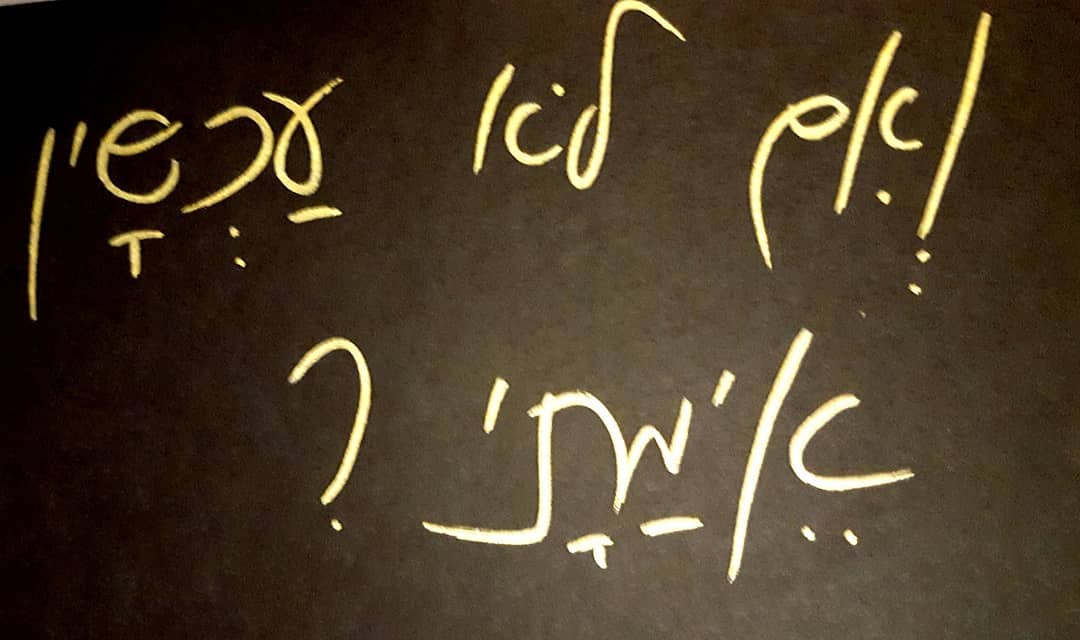 וְאִם לֹא עַכְשָׁיו
אֵימַתָי ?